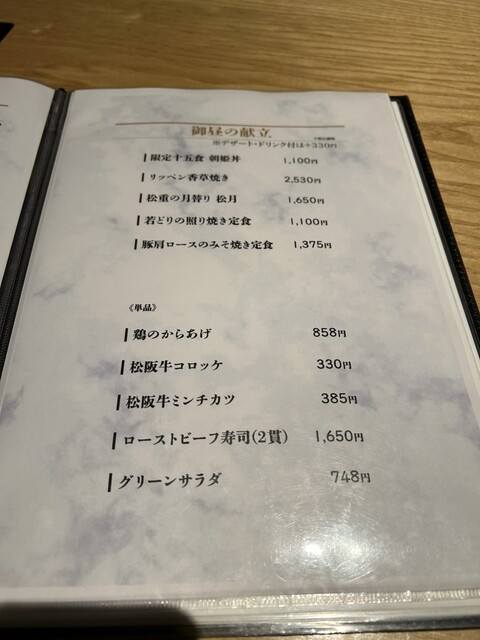 御昼の献立
※デザート・ドリンク付は+330円
限定十五食 朝姫丼 1,100円
リッペン香草焼き 2,530円
松重の月替り 松月 1,650円
若どりの照り焼き定食 1,100円
豚肩ロースのみそ焼き定食 1,375円
《単品》
鶏のからあげ 858円
松阪牛コロッケ 330円
松阪牛ミンチカツ 385円
ローストビーフ寿司(2貫) 1,650円
グリーンサラダ 748円